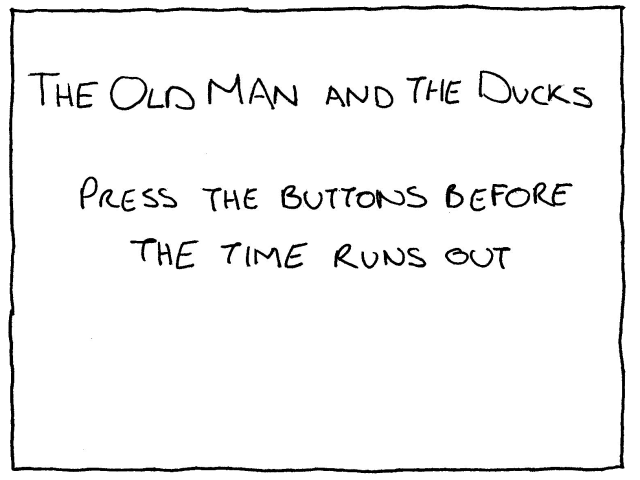 THE OLD MAN AND THE DUCKS
PRESS THE BUTTONS BEFORE
THE TIME RUNS OUT